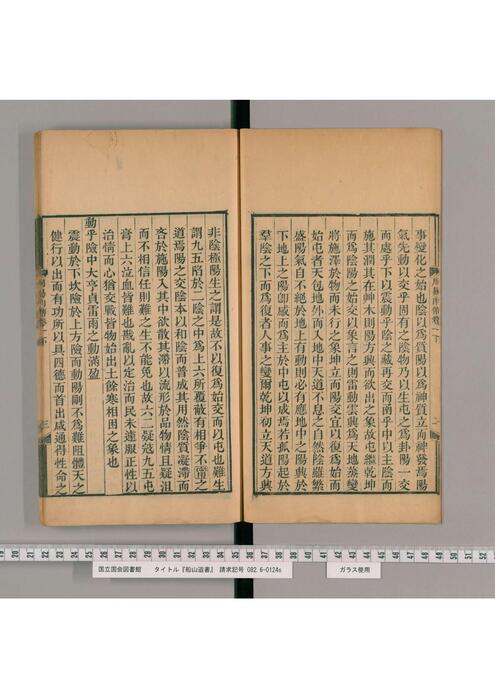 事變化之始也陰以爲質陽以爲神質立而神發焉陽
氣先動以交乎固有之陰物乃以生屯之爲卦陽一交
而處乎下以震動乎陰之藏再交而函乎中以主陰而
施其潤其在艸木則陽方興而欲出之象故屯繼乾坤
而爲陰陽之始交以象言之則雷動雲興爲天地蒸變
將施澤於物而未行之象坤立而陽交宜以復爲始而
始屯者天包地外而入地中天道不息之自然陰雖繁
盛陽氣自不絕於地上有動則必有應地中之陽興於
下地上之陽卽感而爲主於中屯以成焉若孤陽起於
羣陰之下而爲復者人事之變爾乾坤初立天道方興
非陰極陽生之謂是故不以復爲始交而以屯也難生
謂九五陷於二陰之中爲上六所覆蔽有相爭不寧之
道焉陽之交陰本以和陰而普成其用然陰質凝滯而
吝於施陽入其中欲散其滯以流形於品物情且疑沮
而不相信任則難之生不能免也故六二疑寇九五屯
膏上六泣血皆難也戡亂以定治而民未遽服正性以
治情而心猶交戰皆物始出土餘寒相困之象也
動乎險中大亨貞雷雨之動滿盈
震動於下坎險於上方險而動陽剛不爲難阻體天之
健行以出而有功所以具四德而首出咸通得性命之
二
三
国立国会図書館 タイトル『船山遺書』 請求記号 082.6-0124s
ガラス使用
19 20 21 22 23 24 25 26 27 28 29 30 31 32 33 34 35 36 37 38 39 40 41 42 43 44 45 46 47 48 49 50 51 52